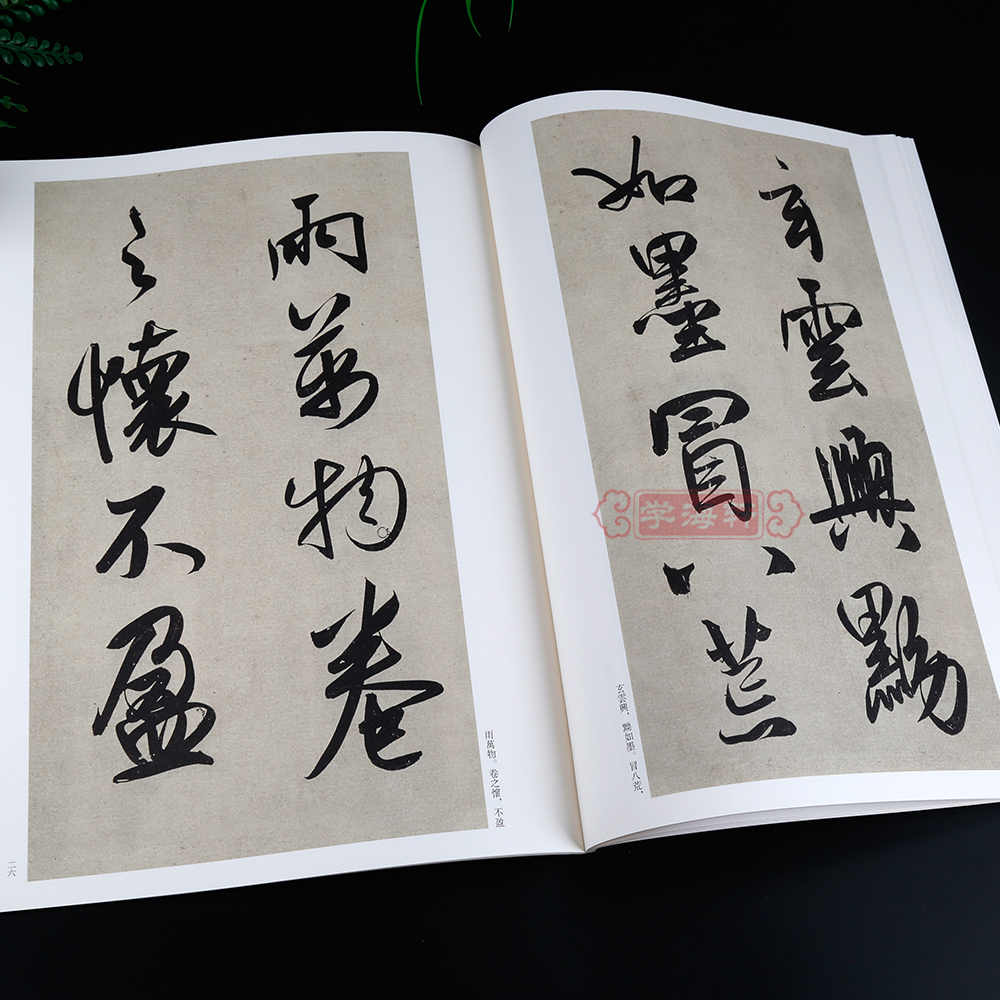 玄雲興黝
如墨冒八荒
玄雲興，黝如墨。冒八荒，
雨萬物卷
之懷不盈
雨萬物。卷之懷，不盈
二六
学海轩